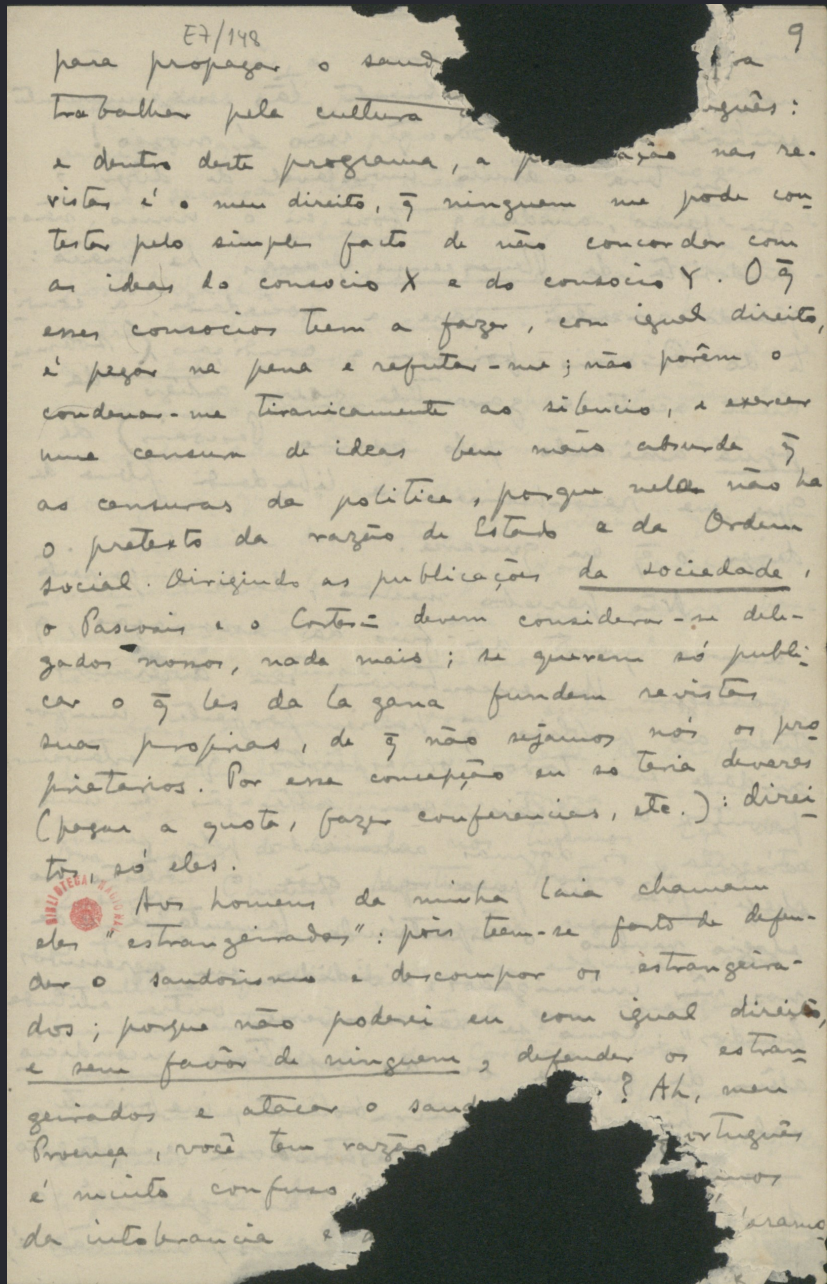 E7/148
9
para propagar o saud
trabalhar pela cultura uguês:
e dentro deste programa, a ação nas re-
vistas é o meu direito, q̃ ninguem me pode con-
testar pelo simples facto de não concordar com
as ideas do consocio X e do consocio Y. O q̃
esses consocios teem a fazer, com igual direito,
é pegar na pena e refutar-me; não porêm o
condenar-me tiranicamente ao silencio, e exercer
uma censura de ideas bem mais absurda q̃
as censuras da politica, porque nela não ha
o pretexto da razão de Estado e da Ordem
social. Dirigindo as publicações da sociedade,
o Pascoais e o Cortesão devem considerar-se dele-
gados nossos, nada mais; se querem só publi-
car o q̃ les da la gana fundem revistas
suas proprias, de q̃ não sejamos nós os pro-
prietarios. Por essa concepção eu so teria deveres
(pagar a quota, fazer conferencias, etc.): direi-
tos, só eles.
BIBLIOTECA NACIONAL
Aos homens da minha laia chamam
eles "estrangeirados": pois teem-se farto de defen-
der o saudosismo e descompor os estrangeira-
dos; porque não poderei eu com igual direito,
e sem favôr de ninguem, defender os estran-
geirados e atacar o saud ? Ah, meu
Proença, você tem razão ortuguês
é muito confuso,
da intolerancia e